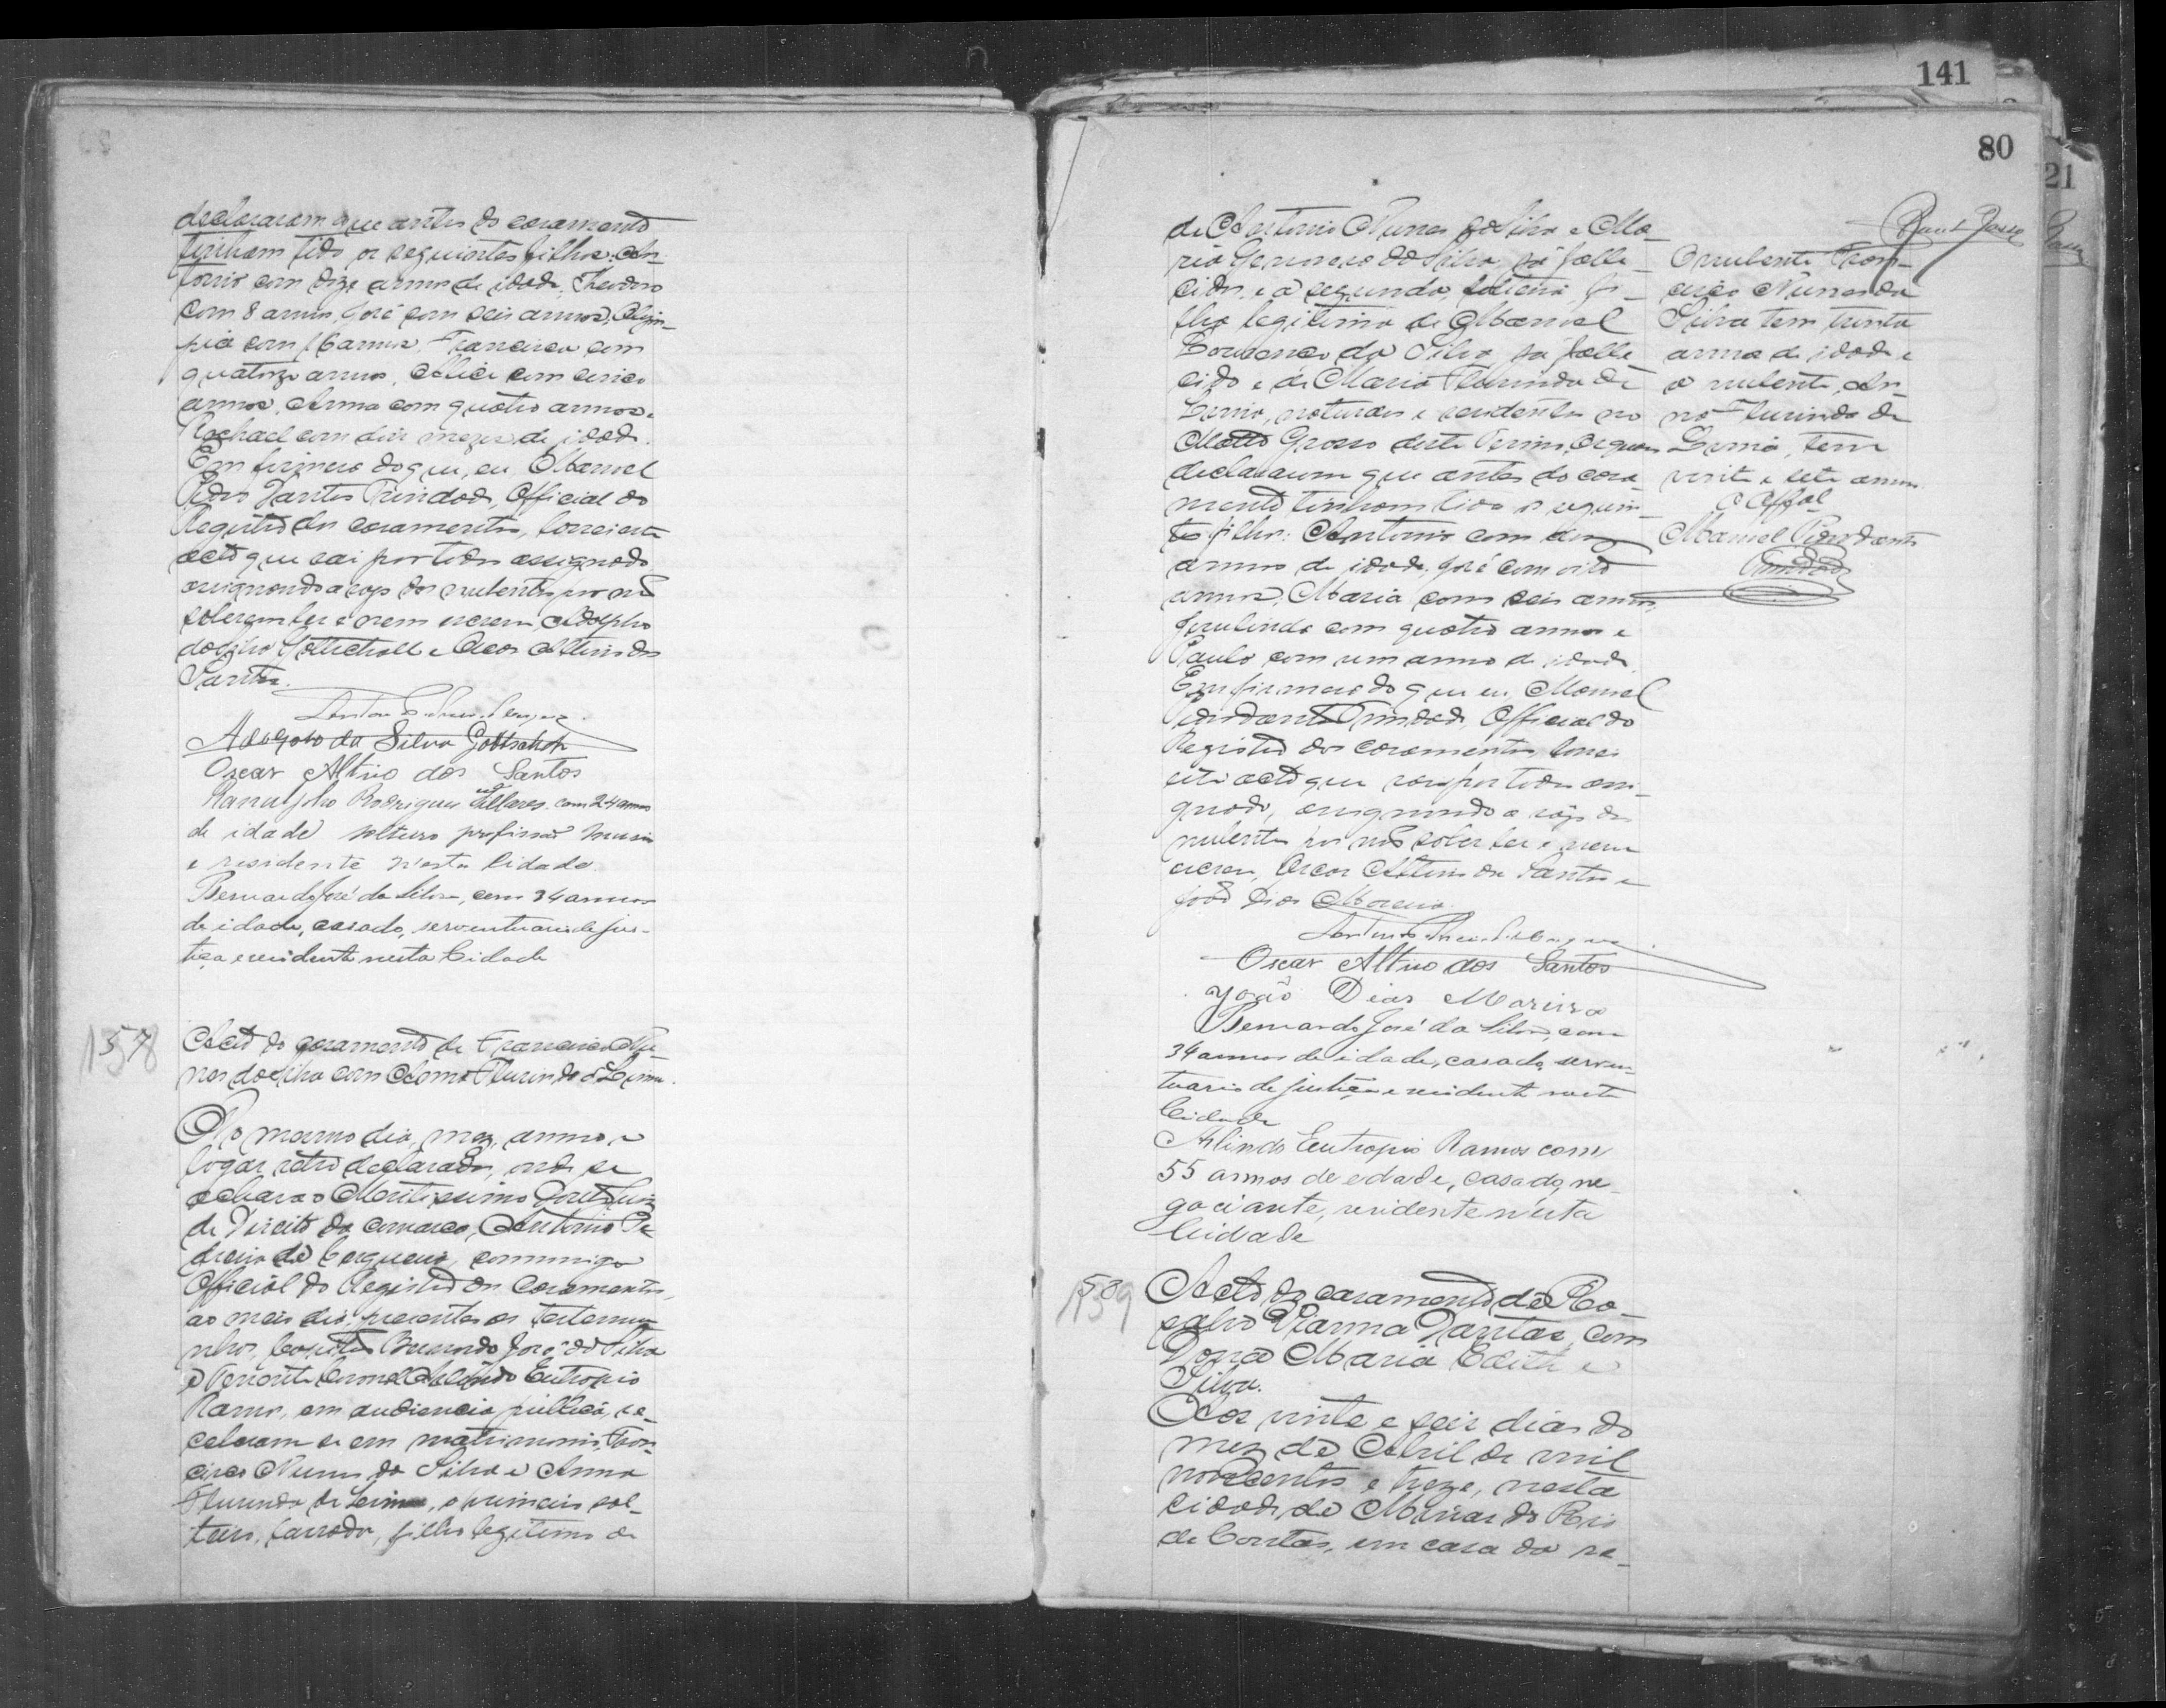 declararam que antes do casamento
tinham tido os seguintes filhos: An-
tonio com doze annos de idade, Theodoro
com 8 annos, José com seis annos, Olym-
pia com 16 annos, Francisca com
quatorze annos, Alice com cinco
annos, Anna com quatro annos e
Rachael com dois mezes de idade.
Em firmeza do que, eu, Manoel
Pedro Dantes Trindade, Official do
Registro dos casamentos, lavrei este
acto que vai por todos assignado
assignando a rogo dos nubentes por não
saberem ler e nem escrever, Adolpho
da Silva Gottschall e Oscar Altino dos
Santos.
Adolpho da Silva Gottschall
Oscar Altino dos Santos
Ranulpho Rodrigues Villares com 24 annos
de idade solteiro profissão musico
e residente n'esta Cidade.
Bernardo José da Silva, com 34 annos
de idade, casado, serventuario de jus-
tiça e residente nesta Cidade
158
Acto do casamento de Francisco Nu-
nes da Silva com Anna Flurinda de Lima.
No mesmo dia, mez, anno e
logar retro declarados, onde se
achava o Meritissimo Juiz
de Direito da comarca, Antonio Pe-
dreira de Cerqueira, commigo
Official do Registro dos Casamentos,
ao meio dia, presentes as testemu-
nhas, Capitão Bernardo José da Silva
e Tenente Coronel Arlindo Eutropio
Ramos, em audiencia publica, re-
ceberam-se em matrimonio, Fran-
cisco Nunes da Silva e Anna
Flurinda de Lima, o primeiro sol-
teiro, lavrador, filho legitimo de
141
80
21
de Antonio Nunes da Silva e Ma-
ria Generosa da Silva, já falle-
cidos, e a segunda, solteira, fi-
lha legitima de Manoel
Lourenço da Silva, já falle-
cido e de Maria Flurinda de
Lima, naturaes e residentes no
Matto Grosso deste Termo, os quaes
declararam que antes do casa-
mento tinham tido os seguin-
tes filhos: Antonio com dez
annos de idade, José com oito
annos, Maria com seis annos,
Jerulinda com quatro annos e
Paulo com um anno de idade.
Em firmeza do que eu, Manoel
Pedro Dantes Trindade, Official do
Registro dos casamentos lavrei
este acto que vai por todos assi-
gnado, assignando a rogo dos
nubentes por não saber ler e nem
escrever, Oscar Altino dos Santos e
João Dias Moreira.
Oscar Altino dos Santos
João Dias Moreira
Bernardo José da Silva, com
34 annos de idade, casado, serven-
tuario de justiça e residente nesta
Cidade
Arlindo Eutropio Ramos com
55 annos de edade, casado, ne-
gociante, residente n'esta
Cidade
O nubente Fran-
cisco Nunes da
Silva tem trinta
annos de idade e
a nubente, An-
na Flurinda de
Lima, tem
vinte e sete annos.
O Offal
Manoel Pedro Dantes
Trindade
159
Acto do casamento de Ro-
salvo Vianna Dantas, com
Dona Maria Edith e
Silva.
Aos vinte e seis dias do
mez de Abril de mil
novecentos e treze, nesta
cidade de Minas do Rio
de Contas, em casa da re-